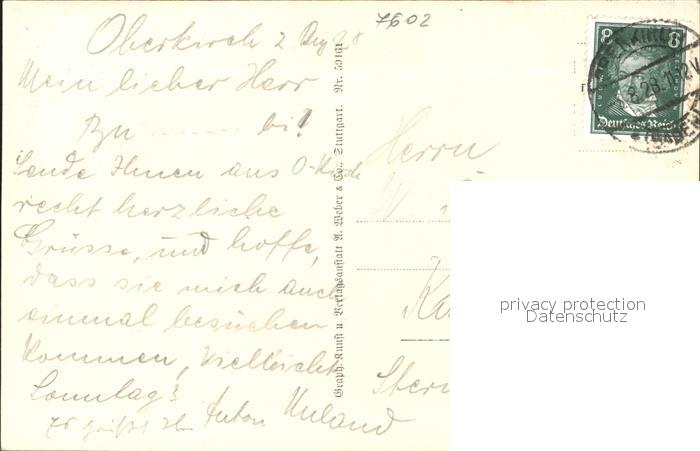 7602
Oberkirch 2 Aug 28
Mein lieber Herr
bi!
Sende Ihnen aus O-Kirch
recht herzliche
Grüsse, und hoffe,
dass sie mich auch
einmal besuchen
kommen, Vielleicht
Sonntag?
Es grüßt Anton Uhland
Graph. Kunst u. Verlagsanstalt A. Weber & Co., Stuttgart. Nr. 50161
Herrn
Stern
8 8
Deutsches Reich
privacy protection
Datenschutz